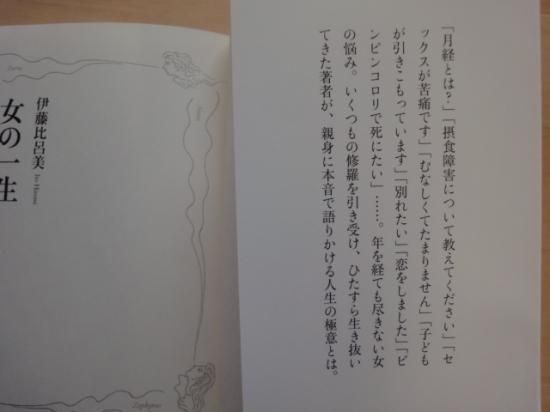 「月経とは?」「摂食障害について教えてください」「セ
ックスが苦痛です」「むなしくてたまりません」「子ども
が引きこもっています」「別れたい」「恋をしました」「ピ
ンピンコロリで死にたい」……。年を経ても尽きない女
の悩み。いくつもの修羅を引き受け、ひたすら生き抜い
てきた著者が、親身に本音で語りかける人生の極意とは。
伊藤比呂美 Ito Hiromi
女の一生
Zephyros